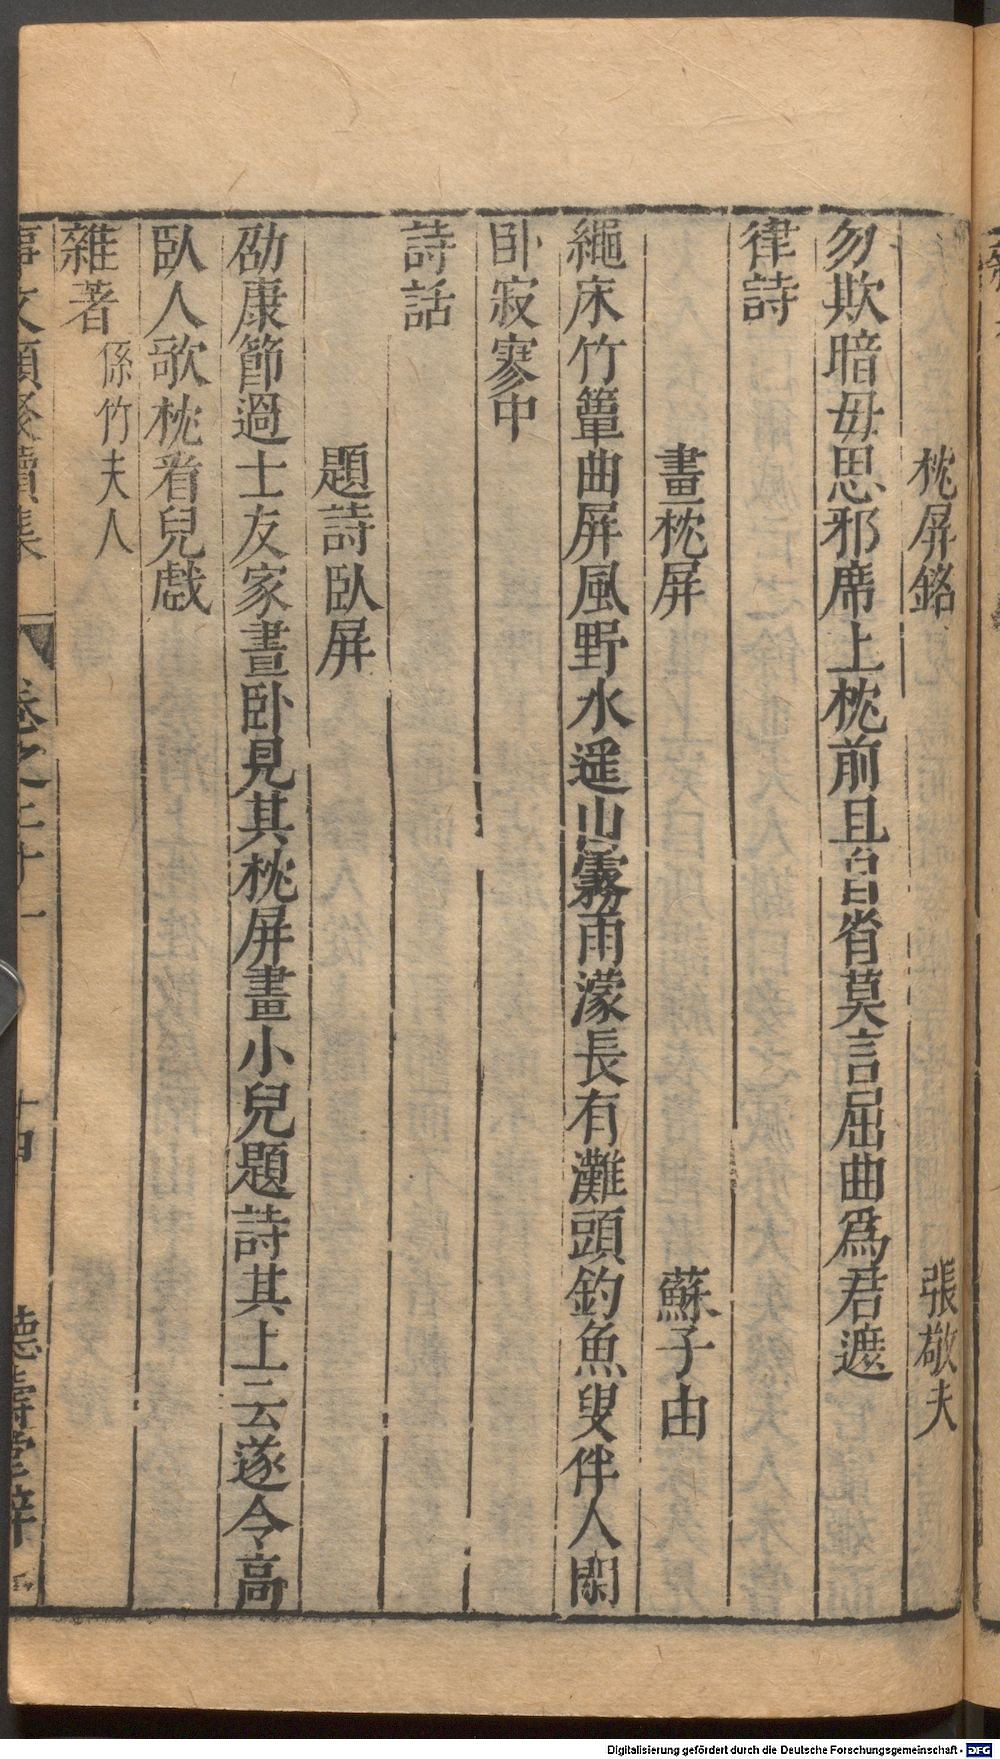 枕屏銘　張敬夫
勿欺暗毋思邪席上枕前且自省莫言屈曲爲君遮
律詩
畫枕屏　蘇子由
繩床竹簟曲屏風野水遥山霧雨濛長有灘頭釣魚叟伴人閑
卧寂寥中
詩話
題詩臥屏
邵康節過士友家晝卧見其枕屏畫小兒題詩其上云遂令高
臥人歌枕看兒戲
雜著 係竹夫人
事文類聚續集 卷之二十一 十四 德壽堂梓
Digitalisierung gefördert durch die Deutsche Forschungsgemeinschaft - DFG